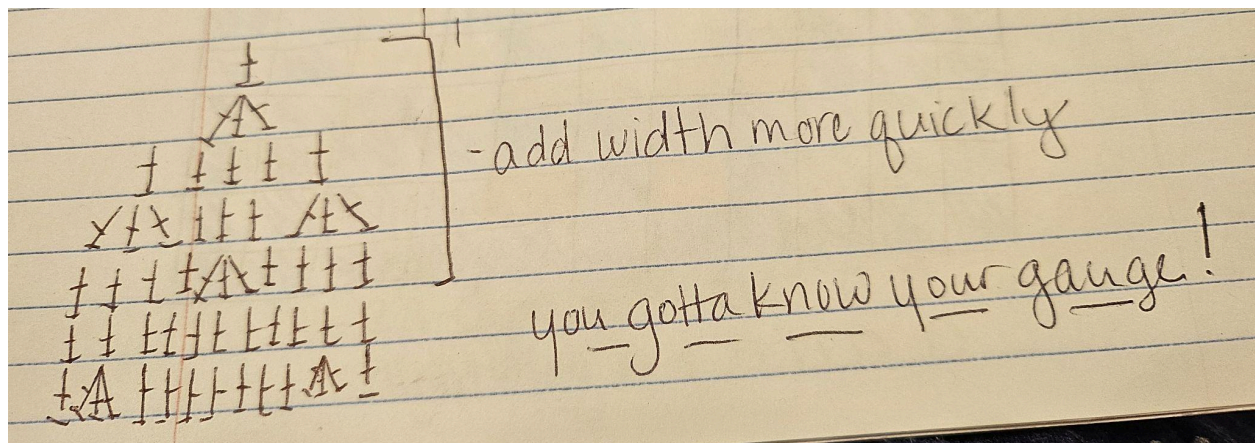 - add width more quickly
you gotta know your gauge!